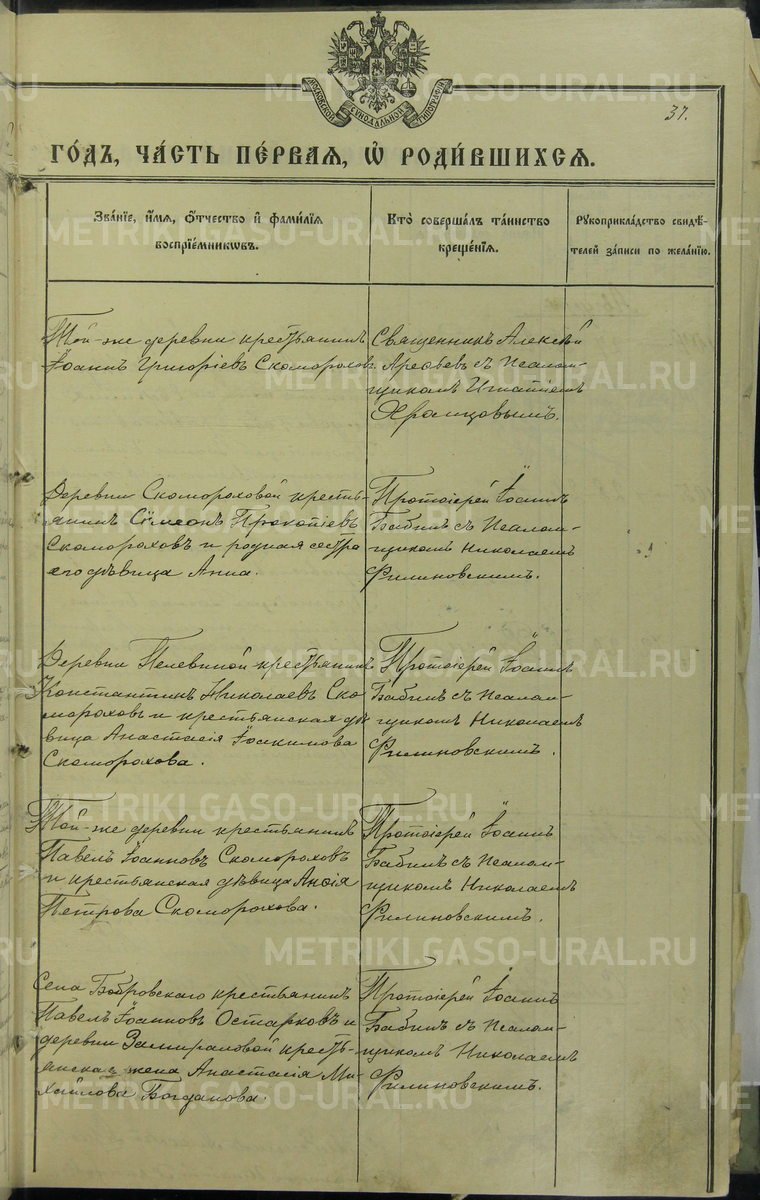 МОСКОВСКОЙ СѴНОДАЛЬНОЙ ТИПОГРАФІИ
METRIKI.GASO-URAL.RU
37.
ГО́ДЪ, ЧА́СТЬ ПЕ́РВАЯ, Ѡ҆ РОДИ́ВШИХСЯ.
Зва́нїе, и҆́мя, ѻ҆́тчество и҆ фами́лїя
воспрїе́мникѡвъ.
Кто̀ соверша́лъ та́инство
креще́нїя.
Рукоприкла́дство свидѣ́-
телей за́писи по жела́нїю.
Той-же деревни крестьянинъ
Іоаннъ Григоріевъ Скомороховъ.
Священникъ Алексѣй
Арефьевъ съ Псалом-
щикомъ Игнатіемъ
Хромцовымъ.
Деревни Скомороховой кресть-
янинъ Сѵмеонъ Прокопіевъ
Скомороховъ и родная сестра
его дѣвица Анна.
Протоіерей Іоаннъ
Бабинъ съ Псалом-
щикомъ Николаемъ
Филиновскимъ.
Деревни Пелевиной крестьянинъ
Константинъ Николаевъ Ско-
мороховъ и крестьянская дѣ-
вица Анастасія Іоакимова
Скоморохова.
Протоіерей Іоаннъ
Бабинъ съ Псалом-
щикомъ Николаемъ
Филиновскимъ.
Той-же деревни крестьянинъ
Павелъ Іоанновъ Скомороховъ
и крестьянская дѣвица Анѳія
Петрова Скоморохова.
Протоіерей Іоаннъ
Бабинъ съ Псалом-
щикомъ Николаемъ
Филиновскимъ.
Села Бобровскаго крестьянинъ
Павелъ Іоанновъ Остарковъ и
деревни Замираловой кресть-
янская жена Анастасія Ми-
хайлова Богданова.
Протоіерей Іоаннъ
Бабинъ съ Псалом-
щикомъ Николаемъ
Филиновскимъ.